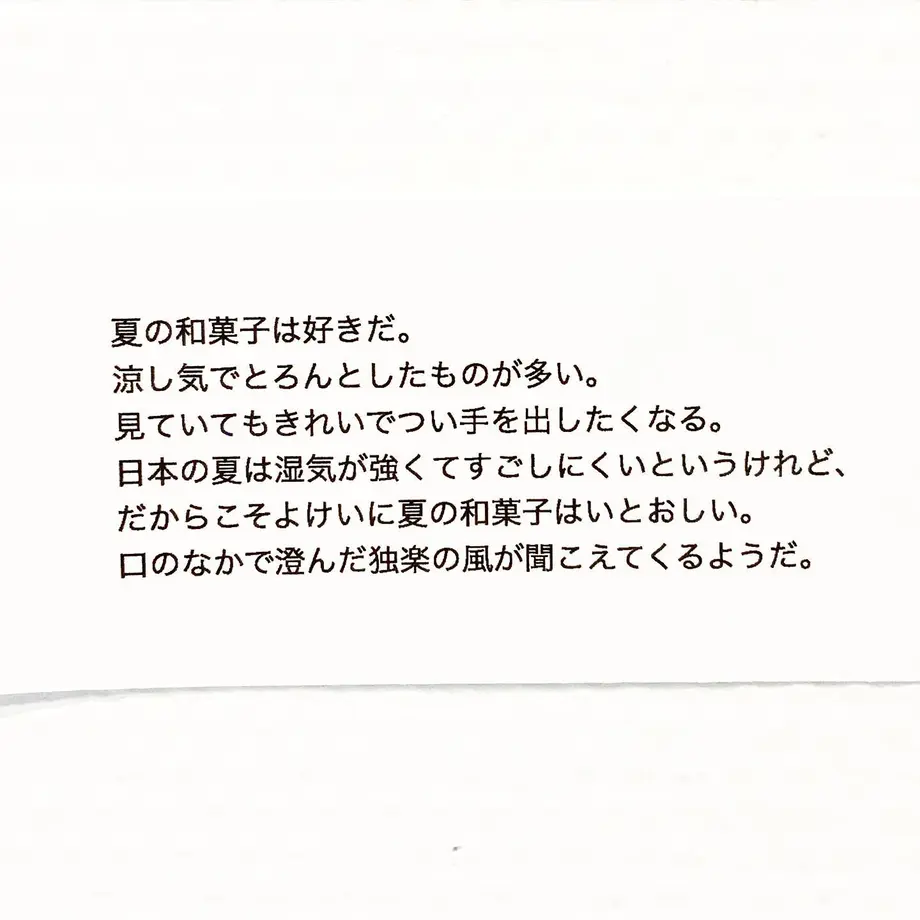 夏の和菓子は好きだ。
涼し気でとろんとしたものが多い。
見ていてもきれいでつい手を出したくなる。
日本の夏は湿気が強くてすごしにくいというけれど、
だからこそよけいに夏の和菓子はいとおしい。
口のなかで澄んだ独楽の風が聞こえてくるようだ。